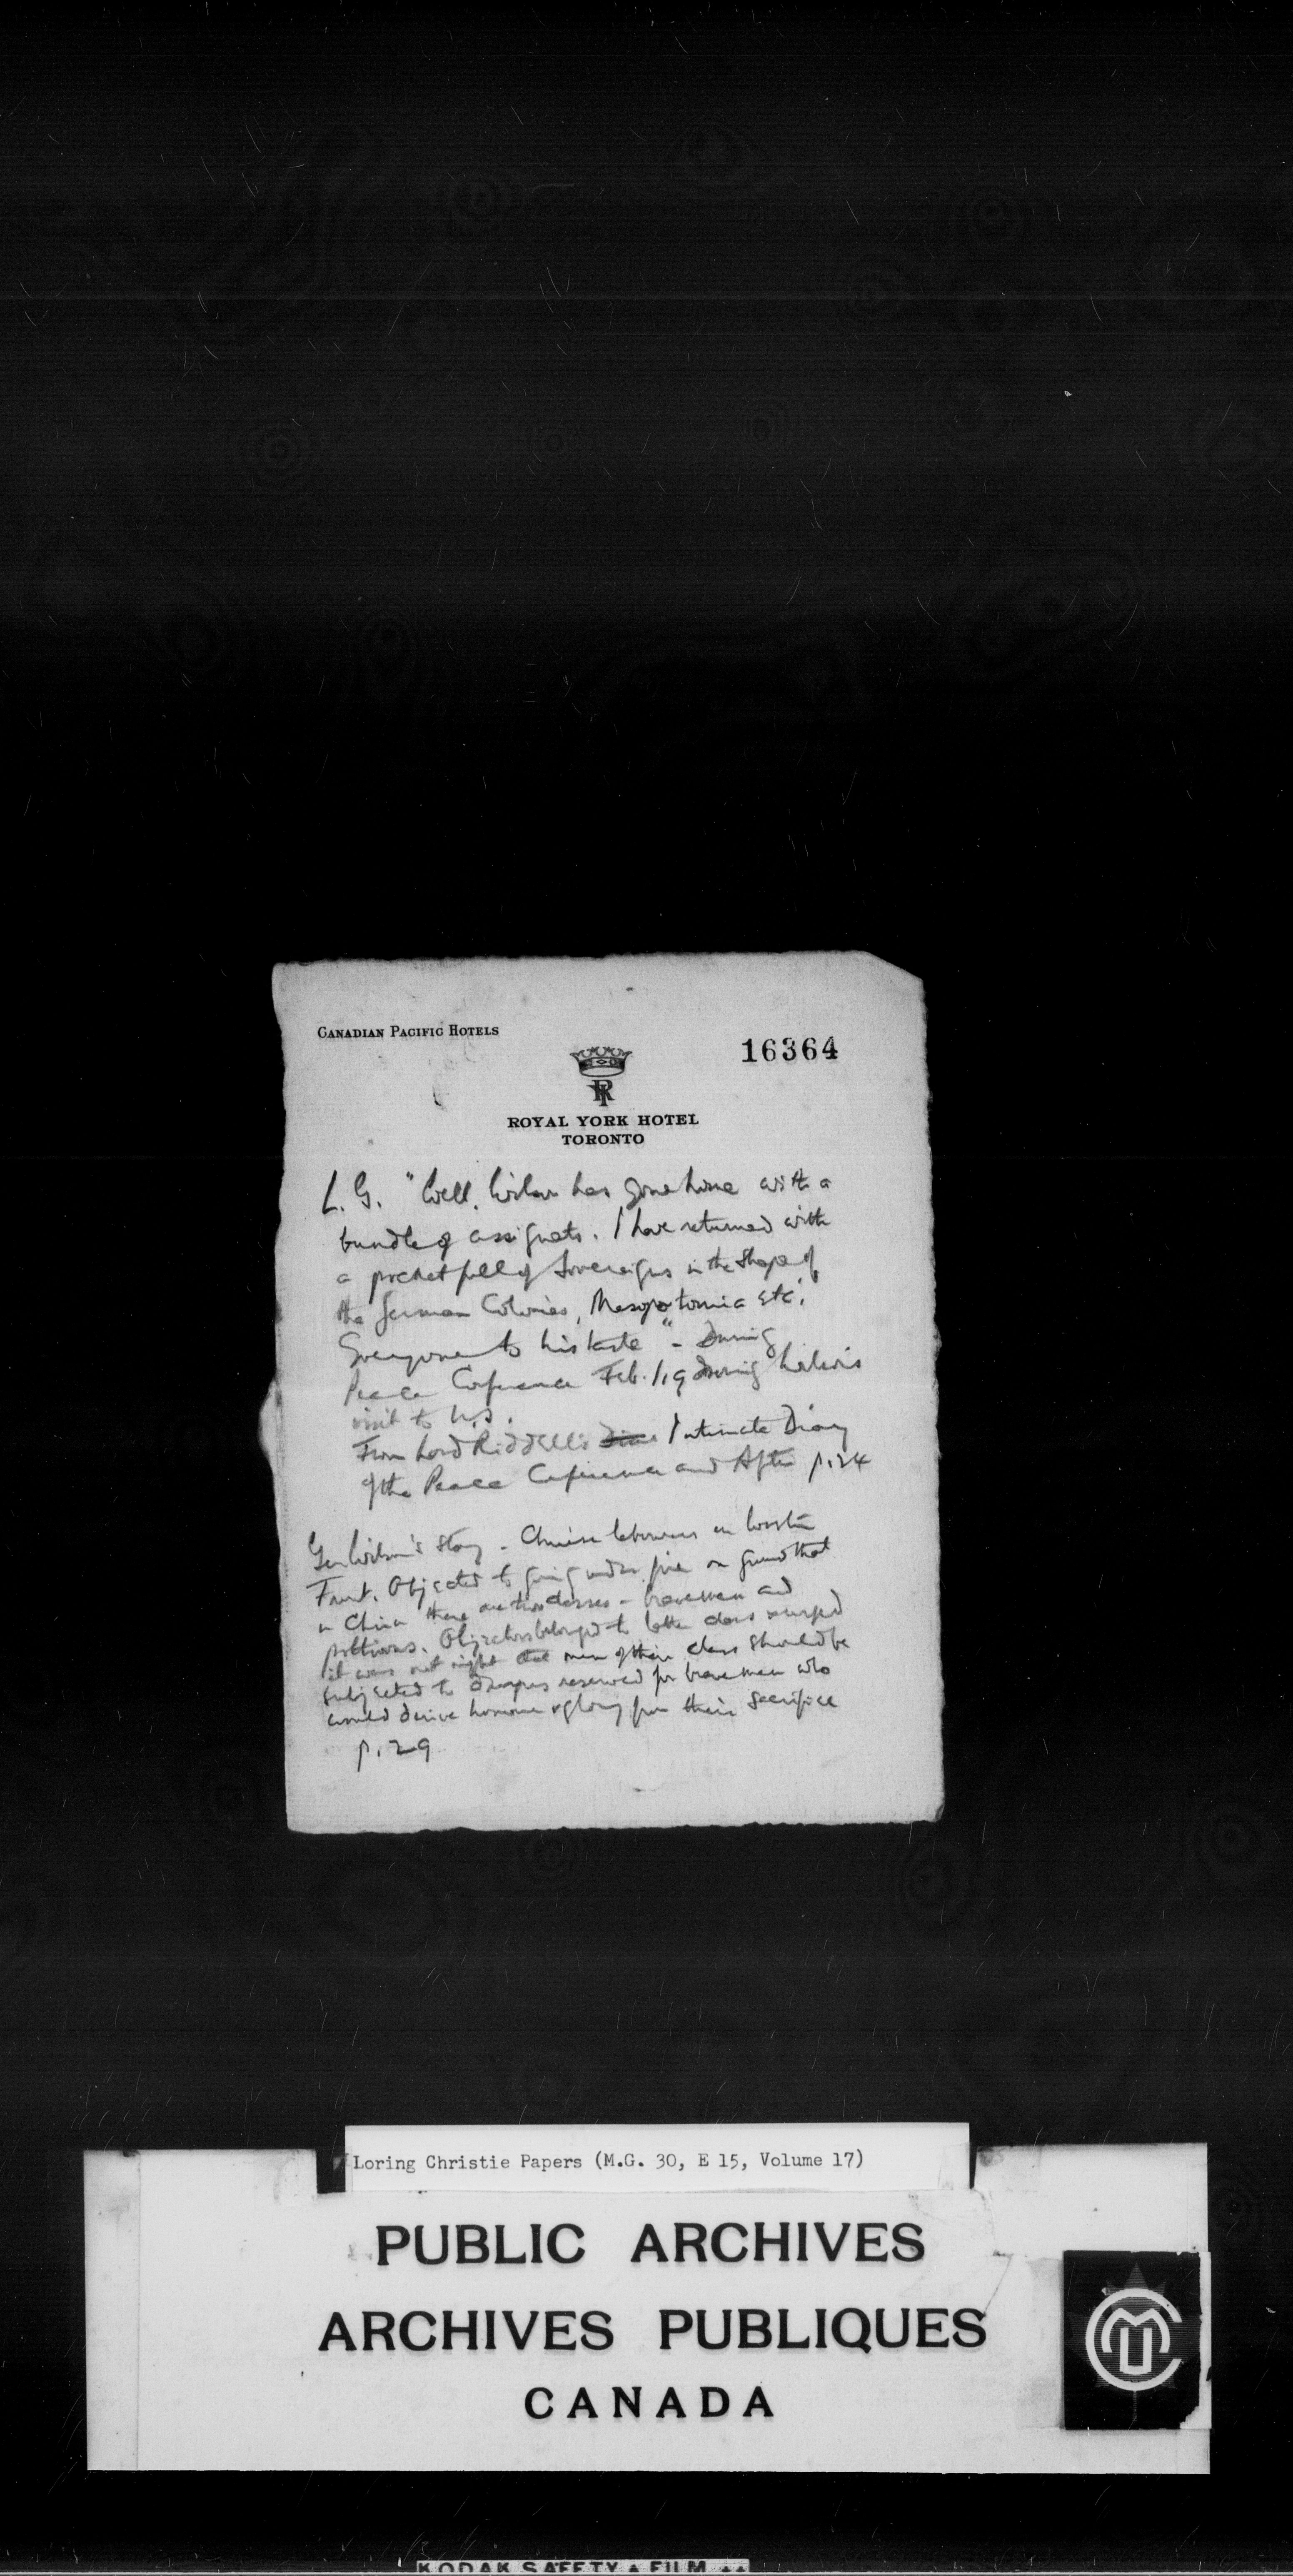 CANADIAN PACIFIC HOTELS
16364
RYT
ROYAL YORK HOTEL
TORONTO
L. G. "Well, Wilson has gone home with a
bundle of assignats. I have returned with
a pocket full of Sovereigns in the shape of
the German Colonies, Mesopotamia etc.
Everyone to his taste" - During
Peace Conference Feb. 1919 during Wilson's
visit to U.S.
From Lord Riddell's Intimate Diary
of the Peace Conference and After p. 24
Gen Wilson's story - Chinese labourers on Western
Front. Objected to going under fire on ground that
in China there are two classes - brave men and
Objectors belonged to latter class
it was not right that men of their class should be
subjected to dangers reserved for brave men who
would derive honour & glory from their sacrifice
p. 29
Loring Christie Papers (M.G. 30, E 15, Volume 17)
PUBLIC ARCHIVES
ARCHIVES PUBLIQUES
CANADA
KODAK SAFETY FILM